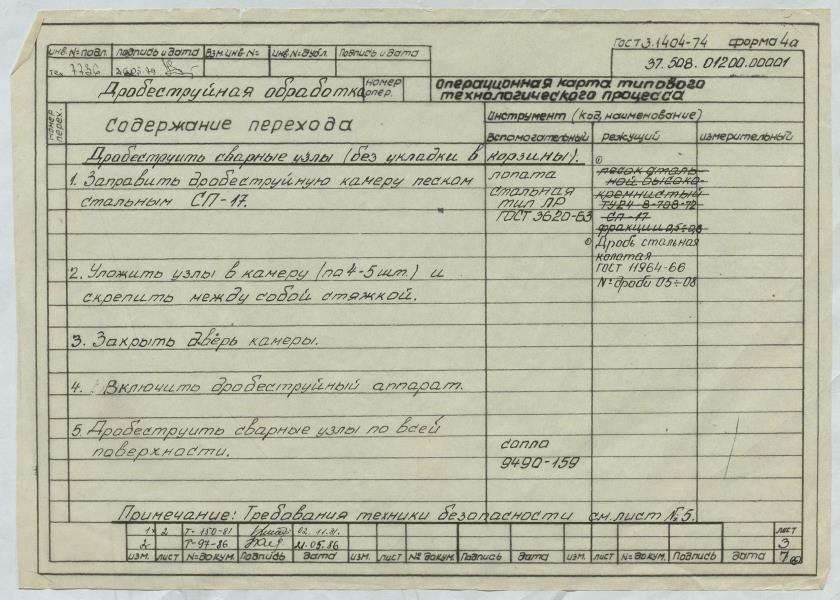 ГОСТ 3.1404-74 форма 4а
инв. № подл. подпись и дата Взм. инв № инв № дубл. Подпись и дата
тех 7736
37.508.01200.00001
Дробеструйная обработка
номер опер.
операционная карта типового
технологического процесса
номер перех.
Содержание перехода
Инструмент (код, наименование)
Вспомогательный режущий измерительный
Дробеструить сварные узлы (без укладки в корзины).
1. Заправить дробеструйную камеру песком
стальным СП-17.
лопата
стальная
тип ЛР
ГОСТ 3620-63
песок сталь-
ной высоко-
кремнистый
ТУ24 8-708-72
СП-17
фракции 0,5÷0,8
Дробь стальная
колотая
ГОСТ 11964-66
№ дроби 05÷08
2. Уложить узлы в камеру (по 4-5 шт.) и
скрепить между собой стяжкой.
3. Закрыть дверь камеры.
4. Включить дробеструйный аппарат.
5. Дробеструить сварные узлы по всей
поверхности.
сопло
9490-159
Примечание: Требования техники безопасности см. лист № 5.
1 2 Т-150-81 02.11.81.
2 Т-97-86 21.05.86
изм. лист № докум. Подпись дата изм. лист № докум. Подпись дата изм. лист № докум. Подпись дата
лист
3
7